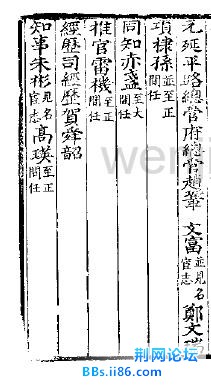 元延平路總管府總管趙 文富並見名宦志 鄭文
項棣孫至正間任
同知亦盞至大間任
推官雷機至正間任
經歷司經歷賀舜韶
知事朱彬見名宦志 高瑛至正間任
荆网论坛
BBs.ii86.com